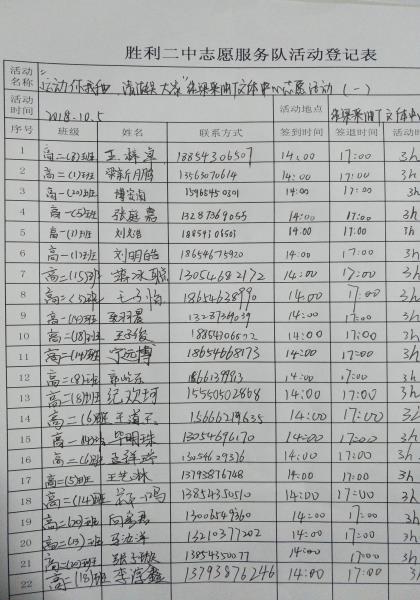 胜利二中志愿服务队活动登记表
活动名称 "运动你我他 清洁大家" 志愿活动 (一)
活动时间 2018.10.5 活动地点
序号 班级 姓名 联系方式 签到时间 签退时间 活动时
1 高二(8)班 18854306507 14:00 17:00 3h
2 高二(1)班 梁新月 13565070614 14:00 17:00 3h
3 高一(20)班 15965450301 14:00 17:00 3h
4 高一(5)班 张庭嘉 13287369055 14:00 17:00 3h
5 高一(1)班 18854306501 14:00 17:00
6 高一(1)班 刘明皓 18654675920 14:00 17:00 3h
7 高二(15)班 13054682172 14:00 17:00 3h
8 高二(5)班 王子怡 18654628990 14:00 17:00 3h
9 高一(14)班 13287369039 14:00 17:00 3h
10 高二(18)班 王子俊 18854306502 14:00 17:00
11 高二(14)班 宋远博 18654668173 14:00 17:00 3h
12 高二(8)班 14:00 17:00 3h
13 高二(8)班 纪欢珂 15550502868 14:00 17:00 3h
14 高二(6)班 15666219635 14:00 17:00
15 高二(14)班 毕明珠 13054696170 14:00 17:00 3h
16 高二(6)班 孟祥 13054629376 14:00 17:00 3h
17 高二(5)班 王艺林 13793876748 14:00 17:00 3h
18 高二(14)班 13854350510 14:00 17:00 3h
19 高二(20)班 13006549360 14:00 17:00 3h
20 高二(13)班 13210377202 14:00 17:00 3h
21 高二(20)班 张子璇 13854350077 14:00 17:00 3h
22 高二(18)班 李学鑫 13793876246 14:00 17:00 3h